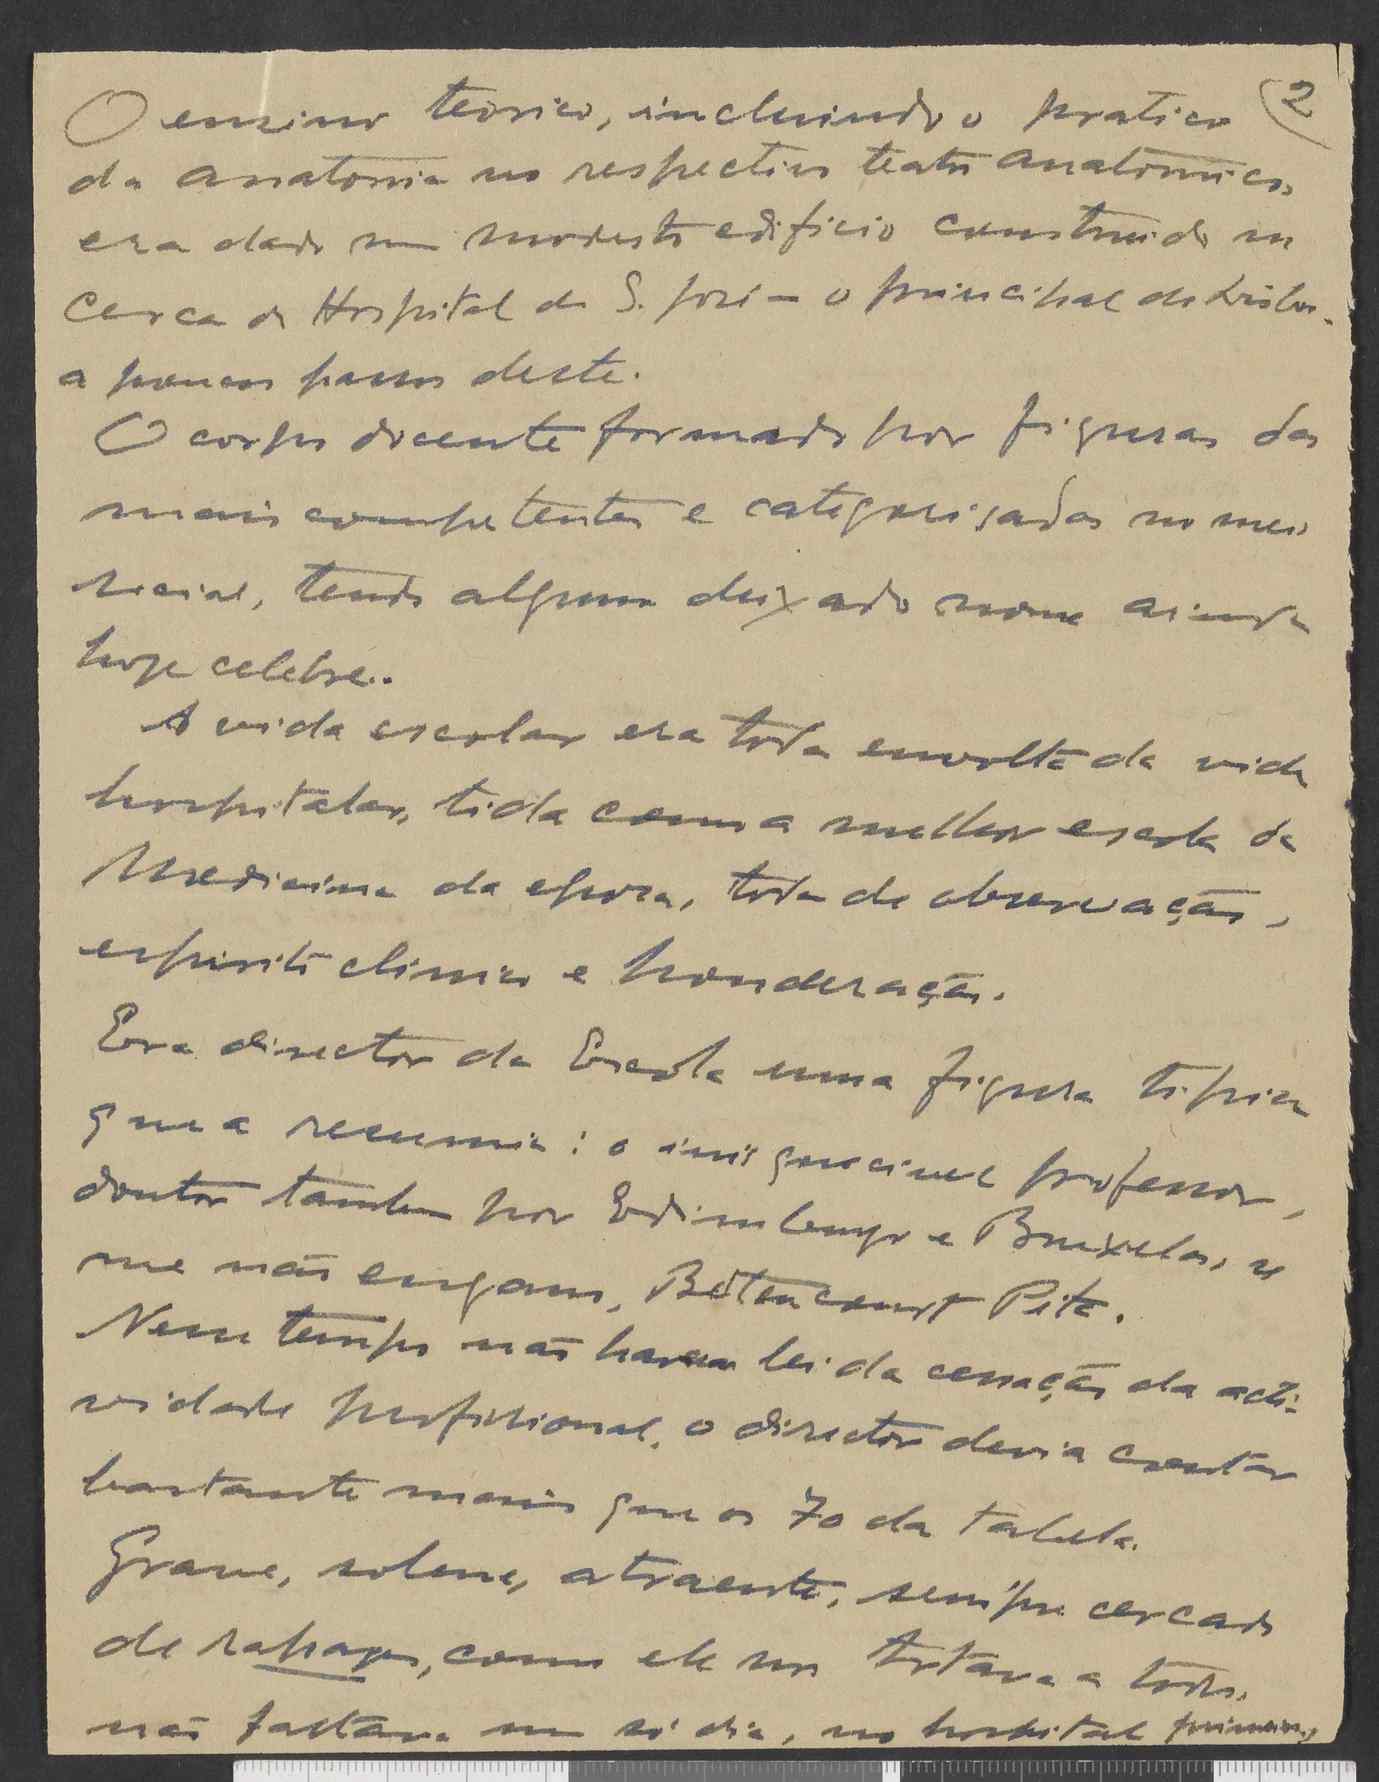 2
O ensino teorico, incluindo o pratico
da anatomia no respectivo teatro anatómico,
era dado num modesto edificio construido na
cerca do Hospital de S. José - o principal de Lisboa -
a poucos passos deste.
O corpo docente formado por figuras das
mais competentes e categorisadas no meio
social, tendo alguns deixado nome ainda
hoje celebre.
A vida escolar era toda envolta da vida
hospitalar, tida como a melhor escola de
Medicina da epoca, toda de observação,
espirito clinico e ponderação.
Era director da Escola uma figura tipica
que a resumia: o inesquecivel professor,
doutor tambem por Edimburgo e Bruxelas, se
me não engano, Betencourt Pita.
Nem tempo não havia lei da cessação da acti-
vidade profissional, o director devia contar
bastante mais que os 70 da tabela.
Grave, solene, atraente, sempre cercado
de rapazes, como ele nos tratava a todos,
não faltava um só dia, no hospital primeiro,